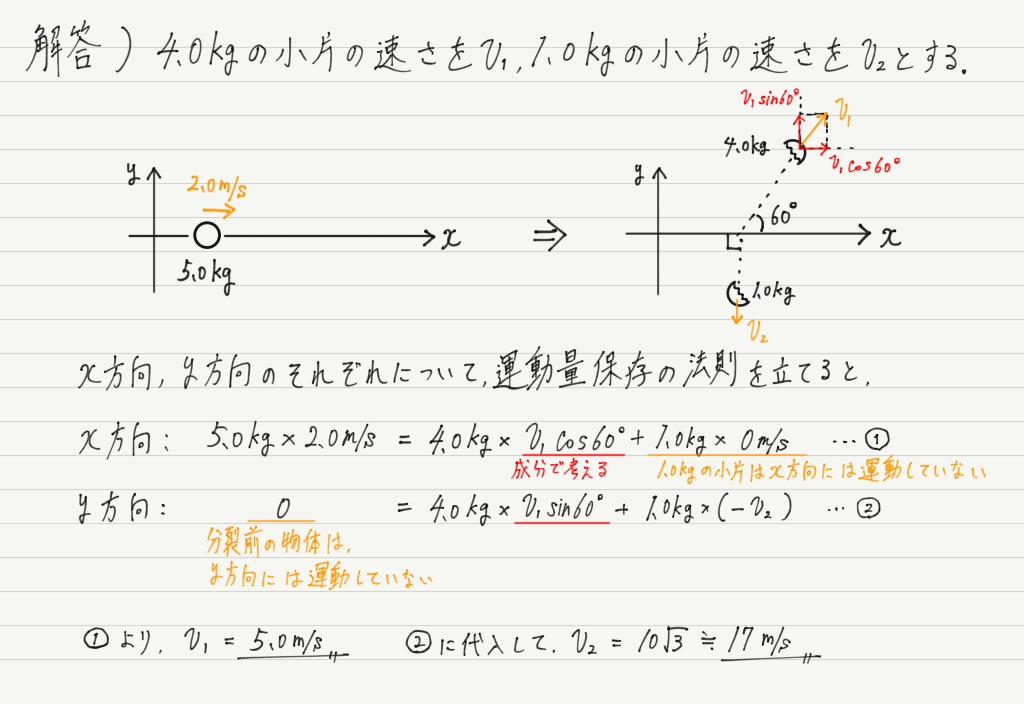 解答) 4.0kgの小片の速さをv₁, 1.0kgの小片の速さをv₂とする.
y
2.0m/s
x
5.0kg
⇒
y
v₁sin60°
v₁
4.0kg
v₁cos60°
60°
x
1.0kg
v₂
x方向, y方向のそれぞれについて, 運動量保存の法則を立てると,
x方向: 5.0kg × 2.0m/s = 4.0kg × v₁cos60° + 1.0kg × 0m/s …①
成分で考える 1.0kgの小片はx方向には運動していない
y方向: 0 = 4.0kg × v₁sin60° + 1.0kg × (-v₂) …②
分裂前の物体は,
y方向には運動していない
①より, v₁ = 5.0m/s ②に代入して, v₂ = 10√3 ≒ 17m/s